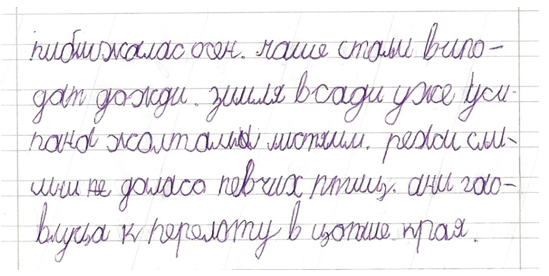 пиближалас осен. чаше стали випо-
дат дожди. зимля всади уже уси-
пана жолталый листям. режи сли-
шни не доласо певчих птиц. ани гао-
влуца к перелоту в цотше края.